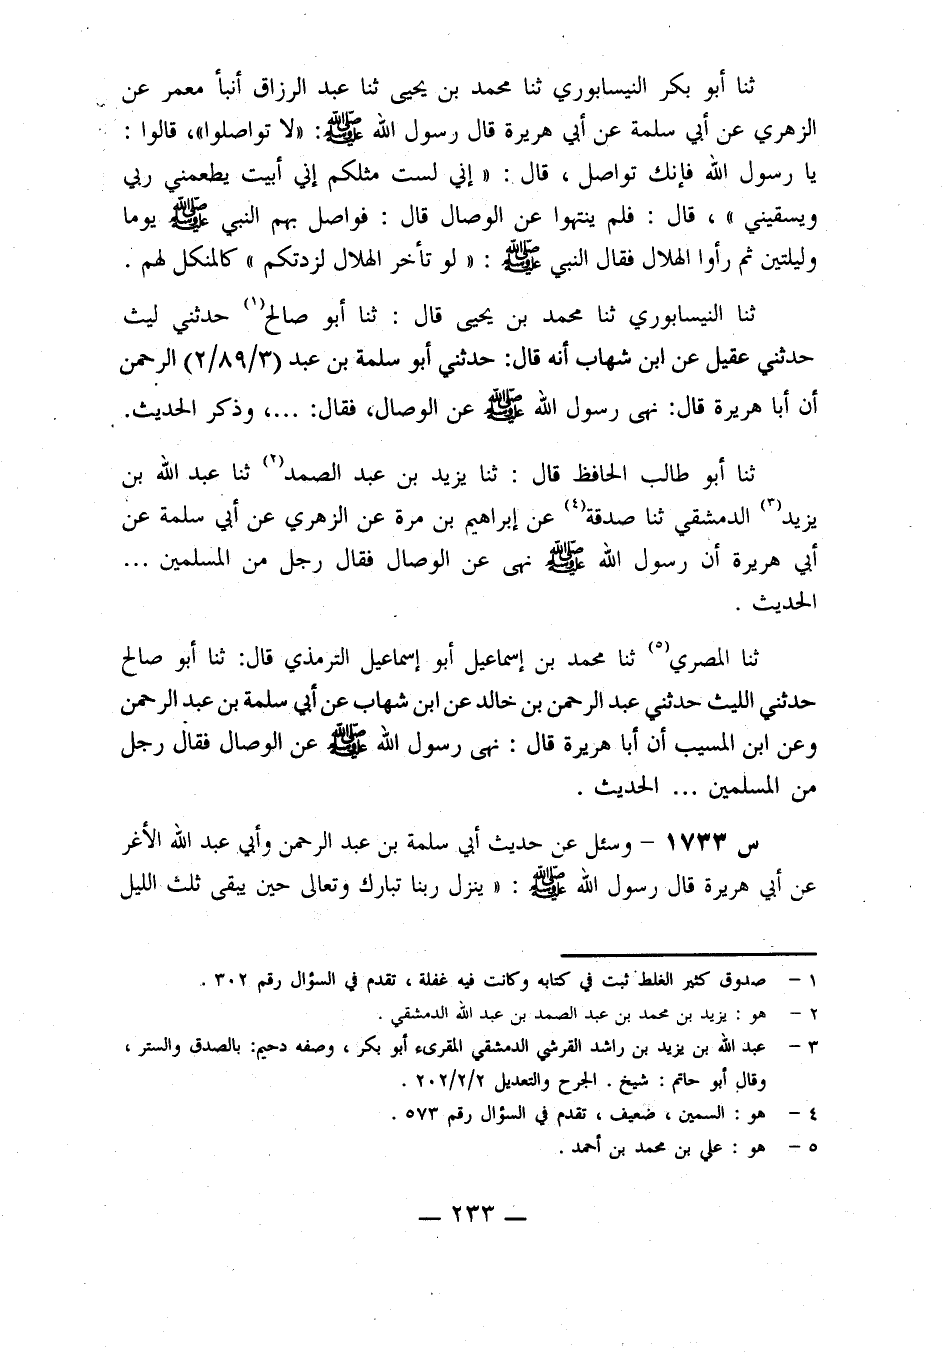 ثنا أبو بكر النيسابوري ثنا محمد بن يحيى ثنا عبد الرزاق أنبأ معمر عن
الزهري عن أبي سلمة عن أبي هريرة قال رسول الله ﷺ: «لا تواصلوا»، قالوا :
يا رسول الله فإنك تواصل ، قال : « إني لست مثلكم إني أبيت يطعمني ربي
ويسقيني » ، قال : فلم ينتهوا عن الوصال قال : فواصل بهم النبي ﷺ يوما
وليلتين ثم رأوا الهلال فقال النبي ﷺ : « لو تأخر الهلال لزدتكم » كالمنكل لهم .
ثنا النيسابوري ثنا محمد بن يحيى قال : ثنا أبو صالح(١) حدثني ليث
حدثني عقيل عن ابن شهاب أنه قال: حدثني أبو سلمة بن عبد (٢/٨٩/٣) الرحمن
أن أبا هريرة قال: نهى رسول الله ﷺ عن الوصال، فقال: ...، وذكر الحديث.
ثنا أبو طالب الحافظ قال : ثنا يزيد بن عبد الصمد(٢) ثنا عبد الله بن
يزيد(٣) الدمشقي ثنا صدقة(٤) عن إبراهيم بن مرة عن الزهري عن أبي سلمة عن
أبي هريرة أن رسول الله ﷺ نهى عن الوصال فقال رجل من المسلمين ...
الحديث .
ثنا المصري(٥) ثنا محمد بن إسماعيل أبو إسماعيل الترمذي قال: ثنا أبو صالح
حدثني الليث حدثني عبد الرحمن بن خالد عن ابن شهاب عن أبي سلمة بن عبد الرحمن
وعن ابن المسيب أن أبا هريرة قال : نهى رسول الله ﷺ عن الوصال فقال رجل
من المسلمين ... الحديث .
س ١٧٣٣ - وسئل عن حديث أبي سلمة بن عبد الرحمن وأبي عبد الله الأغر
عن أبي هريرة قال رسول الله ﷺ : « ينزل ربنا تبارك وتعالى حين يبقى ثلث الليل
١ - صدوق كثير الغلط ثبت في كتابه وكانت فيه غفلة ، تقدم في السؤال رقم ٣٠٢ .
٢ - هو : يزيد بن محمد بن عبد الصمد بن عبد الله الدمشقي .
٣ - عبد الله بن يزيد بن راشد القرشي الدمشقي المقرىء أبو بكر ، وصفه دحيم: بالصدق والستر ،
وقال أبو حاتم : شيخ . الجرح والتعديل ٢٠٢/٢/٢ .
٤ - هو : السمين ، ضعيف ، تقدم في السؤال رقم ٥٧٣ .
٥ - هو : علي بن محمد بن أحمد .
— ٢٣٣ —